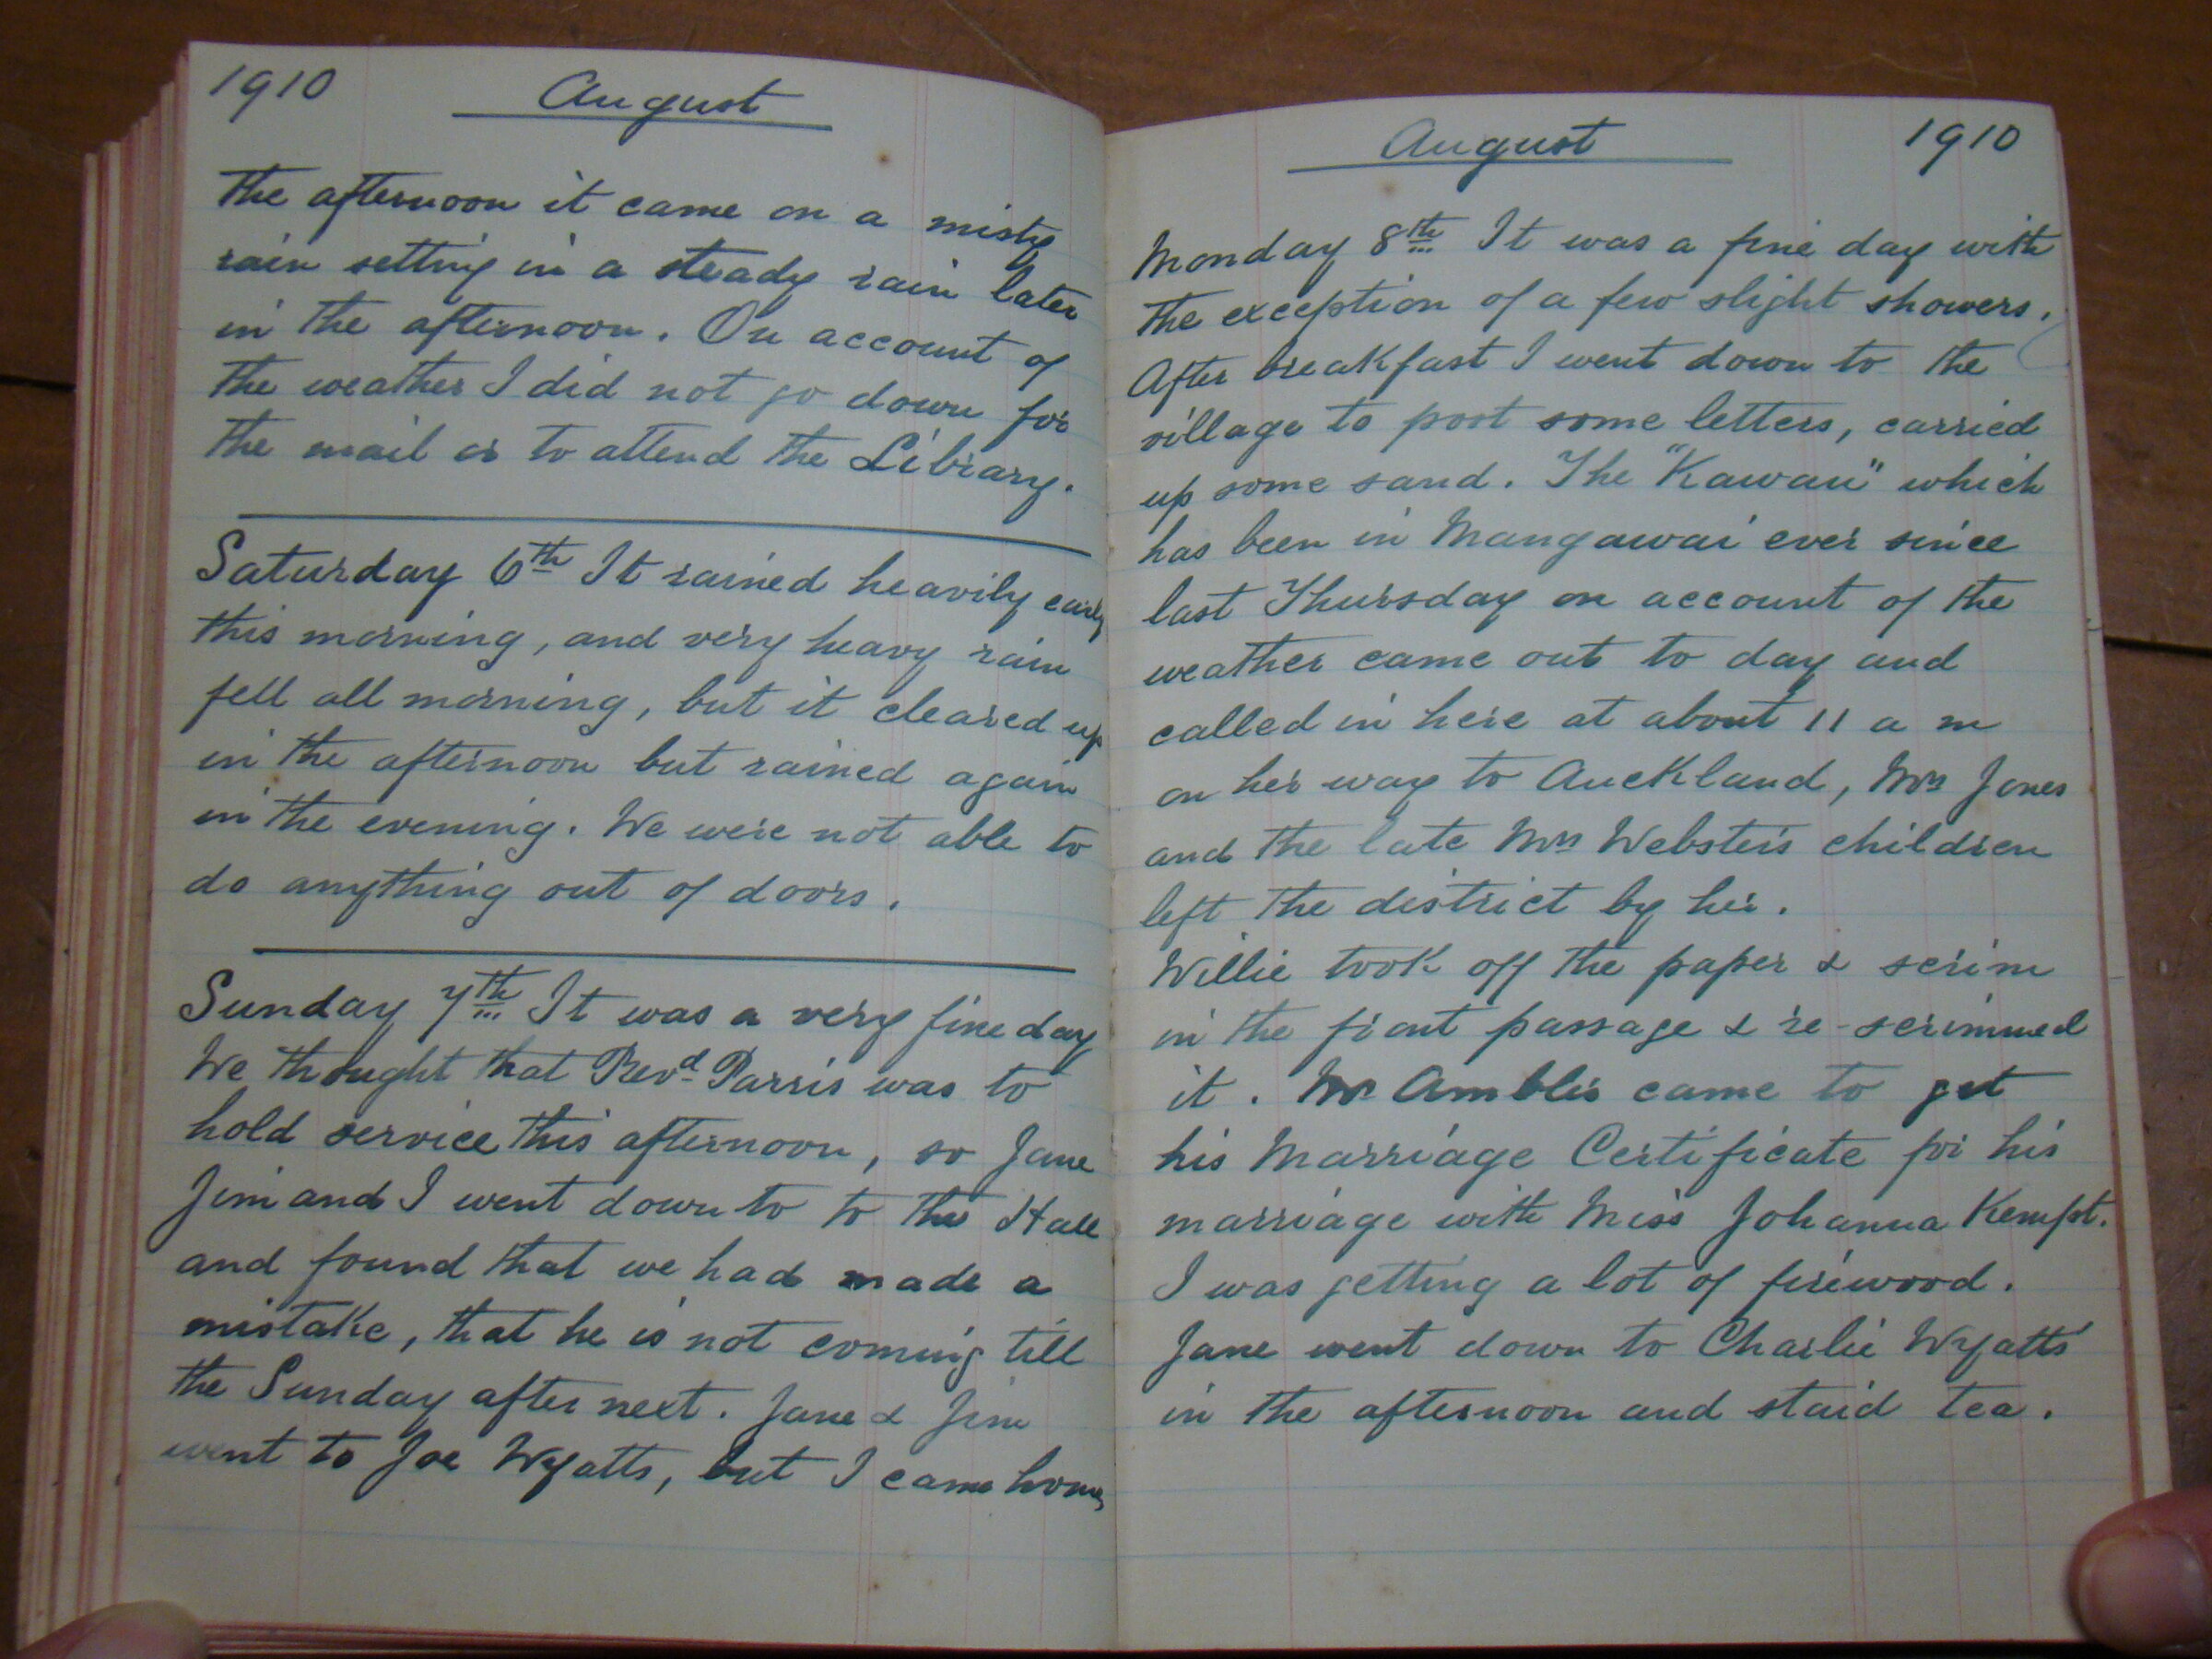 1910 August
the afternoon it came on a misty
rain setting in a steady rain later
in the afternoon. On account of
the weather I did not go down for
the mail or to attend the Library.
Saturday 6th It rained heavily early
this morning, and very heavy rain
fell all morning, but it cleared up
in the afternoon but rained again
in the evening. We were not able to
do anything out of doors.
Sunday 7th It was a very fine day
We thought that Revd Parris was to
hold service this afternoon, so Jane
Jim and I went down to to the Hall
and found that we had made a
mistake, that he is not coming till
the Sunday after next. Jane & Jim
went to Joe Wyatts, but I came home,
August 1910
Monday 8th It was a fine day with
the exception of a few slight showers.
After breakfast I went down to the
village to post some letters, carried
up some sand. The "Kawau" which
has been in Mangawai ever since
last Thursday on account of the
weather came out to day and
called in here at about 11 a m
on her way to Auckland, Mrs Jones
and the late Mrs Websters children
left the district by her.
Willie took off the paper & scrim
in the front passage & re-scrimmed
it. Mr Ambler came to get
his Marriage Certificate for his
marriage with Miss Johanna Kempt.
I was getting a lot of firewood.
Jane went down to Charlie Wyatts'
in the afternoon and staid tea.